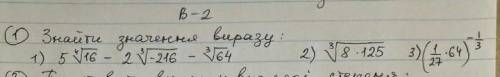 В-2
① Знайти значення виразу:
1) 5 ∜16 - 2 ∛-216 - ∛64 2) ∛8·125 3) (1/27 · 64)^(-1/3)